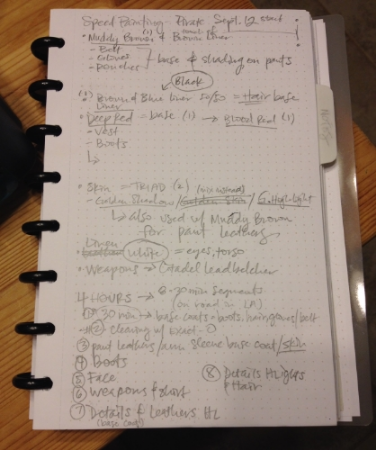 Speed Painting - Pirate Sept. 12 start
• Muddy Brown (1) & Brown Liner
- Belt
- Gloves
- pouches
base & shading on pants
Black
(2) Brown & Blue Liner 50/50 = Hair base
Liner
• Deep Red = base (1) → Blood Red (1)
- Vest
- Boots
• Skin = TRIAD (2)
- Golden Shadow / Golden Skin / G. Highlight
↳ also used w/ Muddy Brown
for pant leathers
Linen
• White = eyes, torso
• Weapons → Citadel Leadbelcher
4 HOURS → 6-30 min segments
(on road in LA)
30 min → base coats = boots, hair, gloves/belt
#2) cleaning w/
③ pant leathers/arm sleeve base coat/skin
④ Boots
⑤ Face
⑥ Weapons & shirt
⑦ Details & Leathers HL
(base coat)
⑧ Details HLights
& Hair